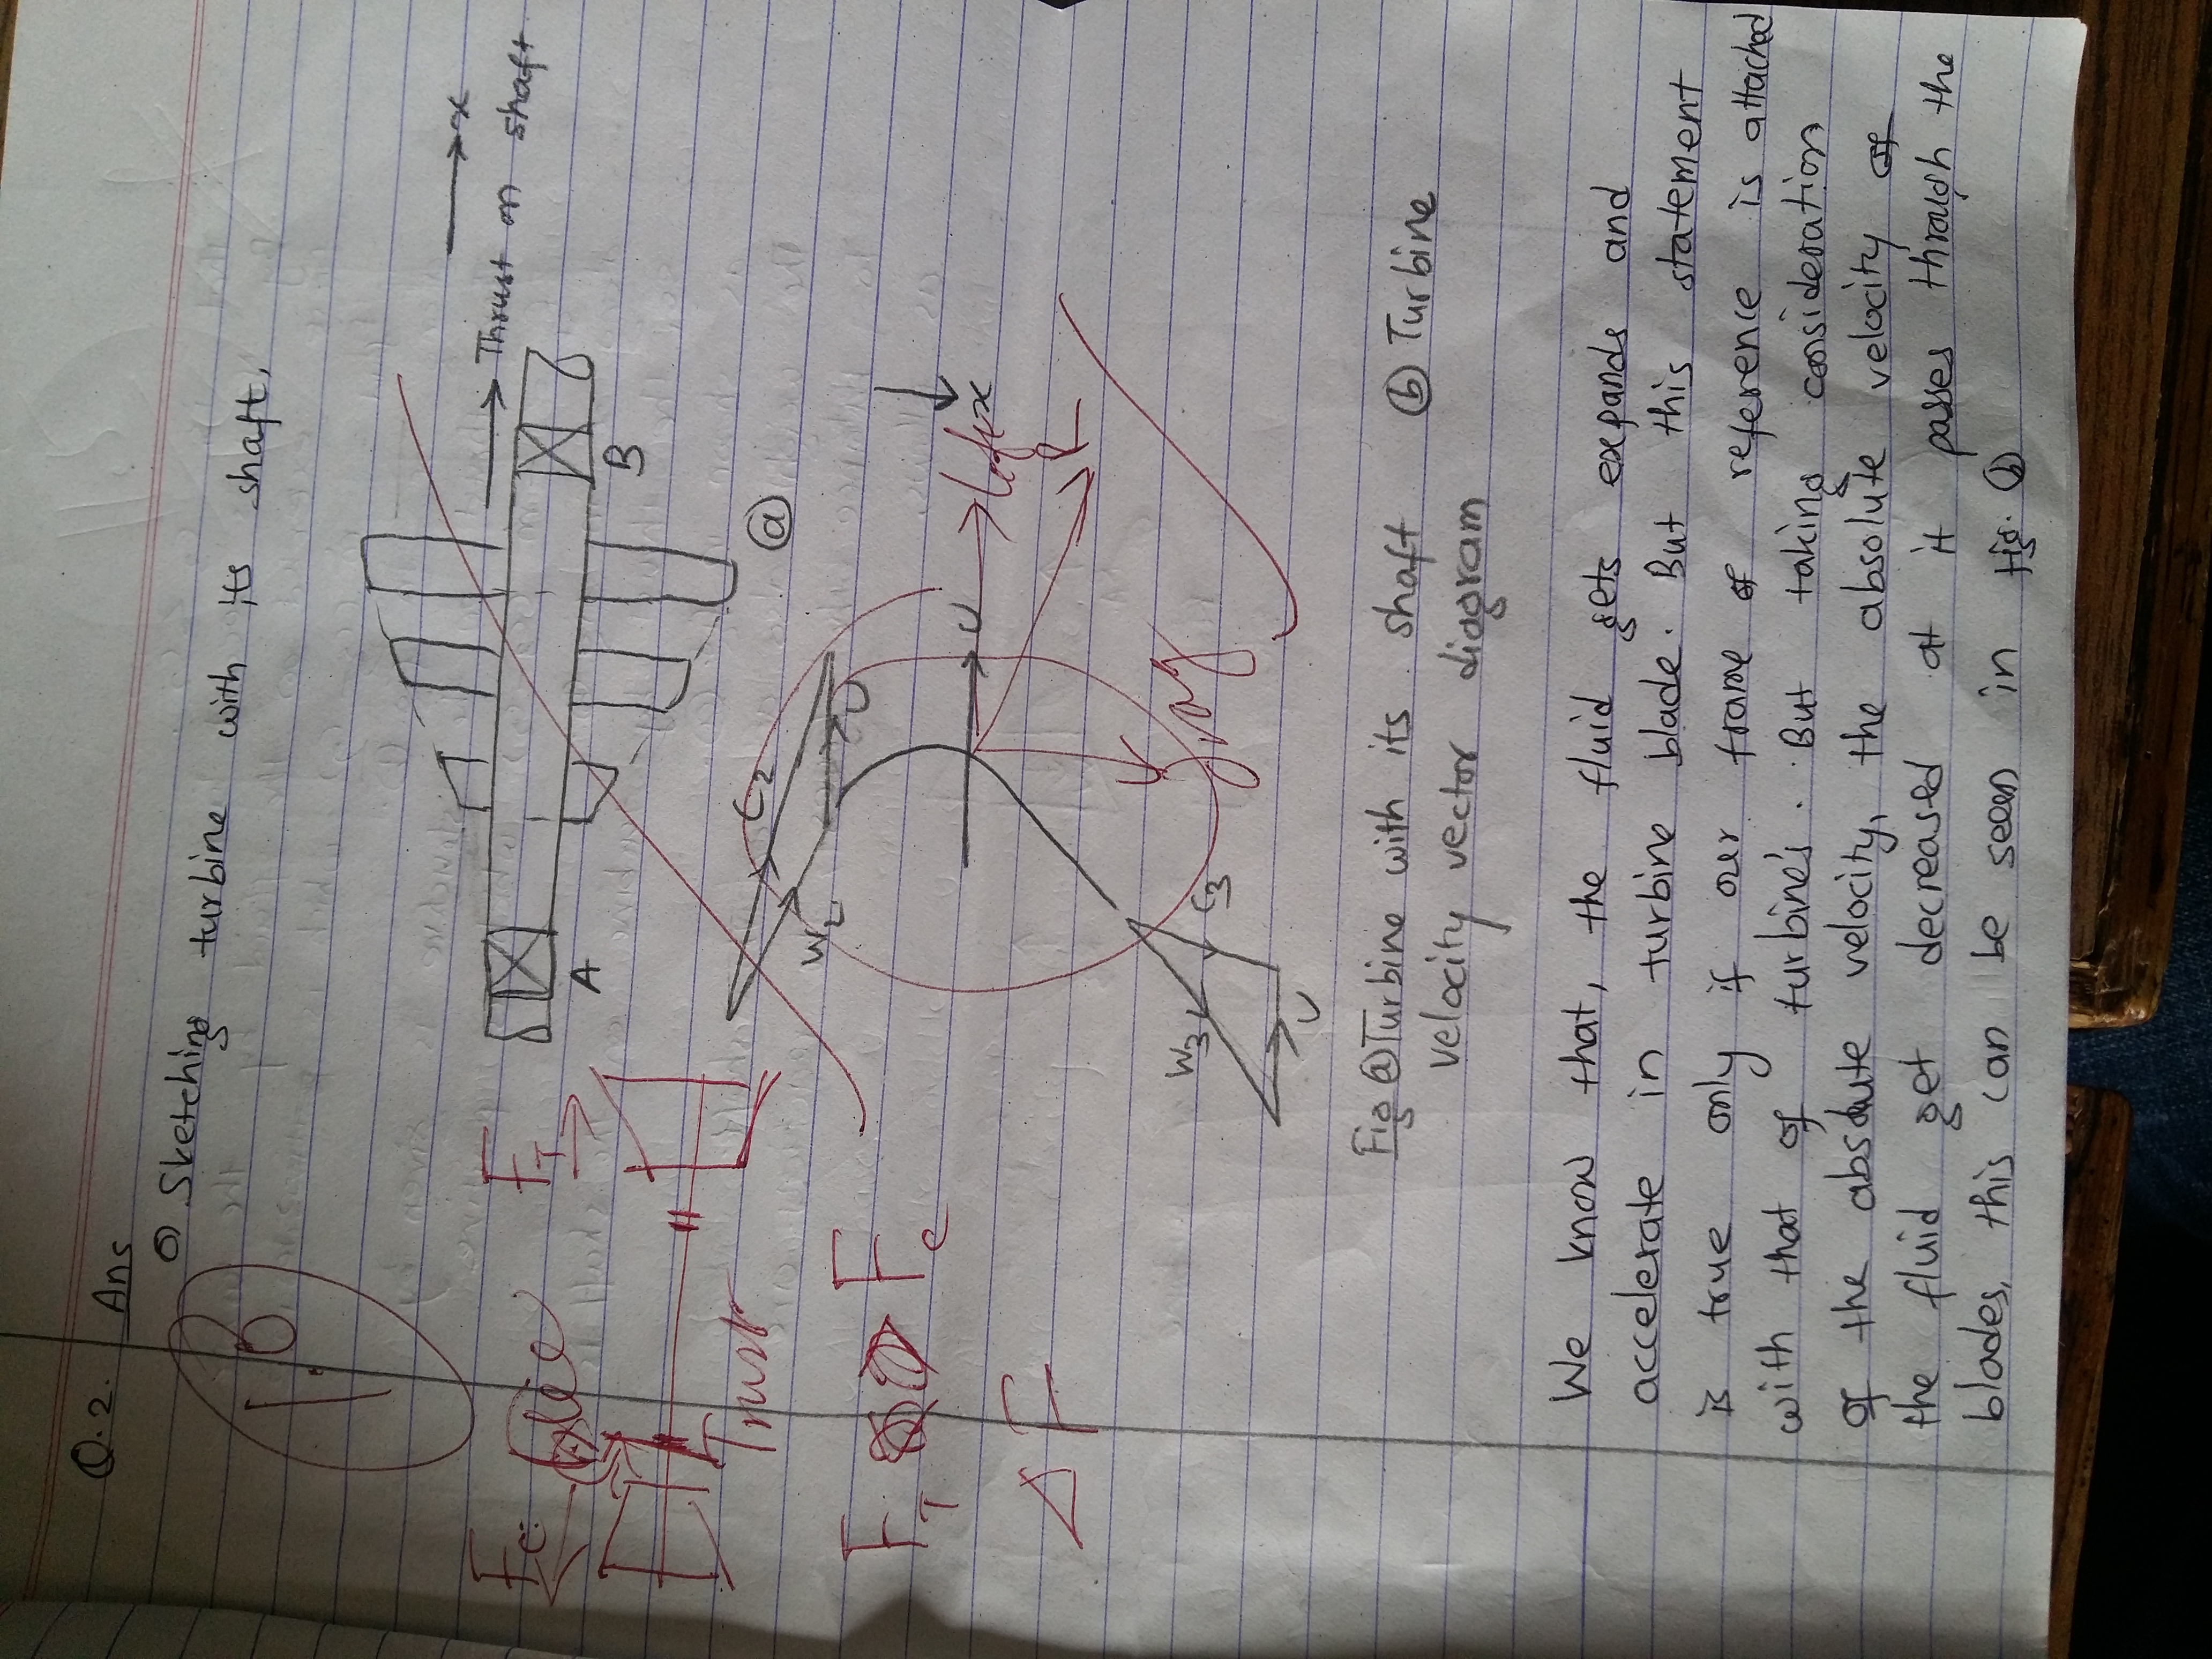 Q.2. Ans
Sketching turbine with its shaft,
x
Thrust on shaft
A
B
a
Fc
FT
Trust
FT Fc
ΔF
C2
W2
U
U
x
R
Drag
W3
C3
U
Fig a Turbine with its shaft b Turbine
velocity vector diagram
We know that, the fluid gets expands and
accelerate in turbine blade. But this statement
is true only if our frame of reference is attached
with that of turbine's. But taking consideration
of the absolute velocity, the absolute velocity of
the fluid get decreased at it passes through the
blades, this can be seen in fig. b